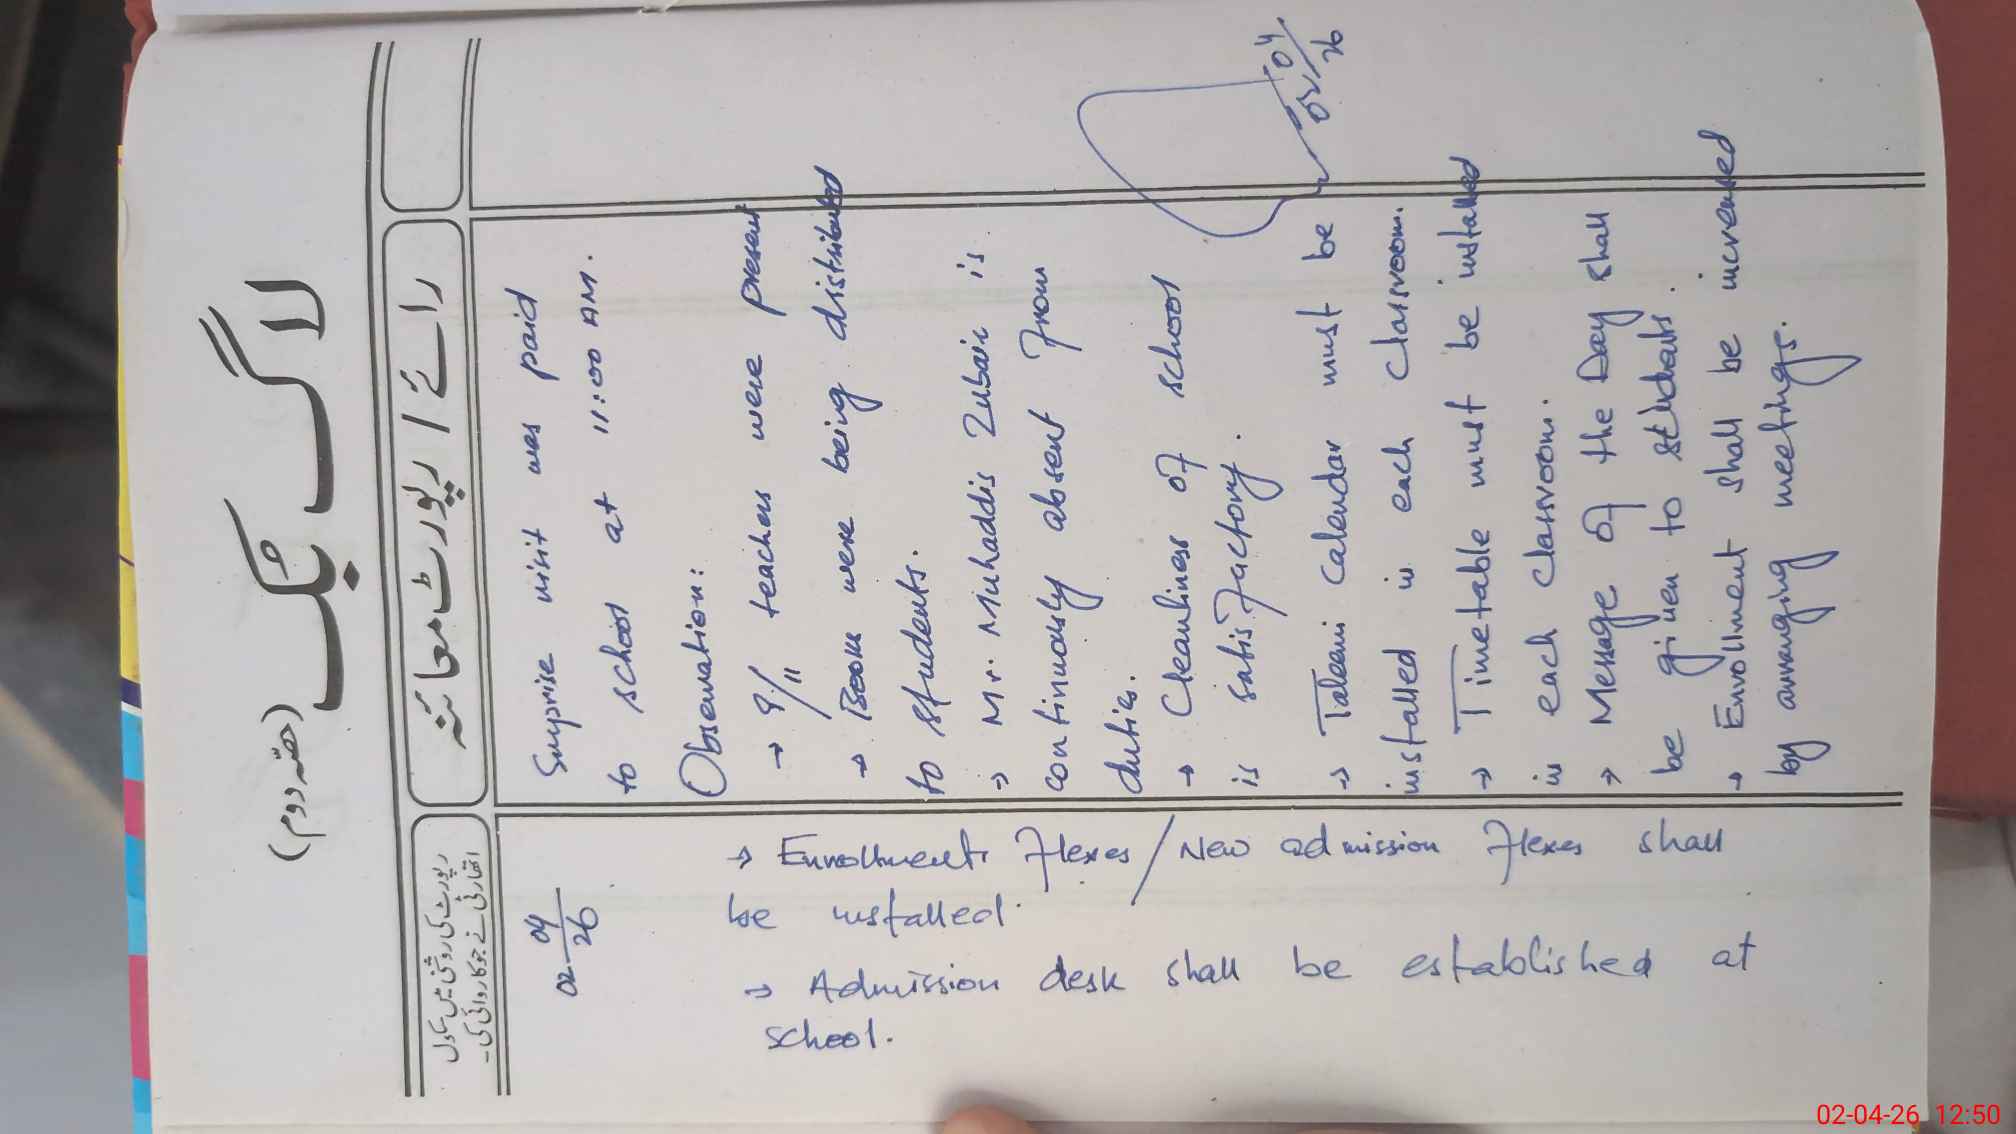 لاگ بک
(حصّہ دوم)
رائے / رپورٹ معائنہ
رپورٹ کی روشنی میں سکول
اتھارٹی نے جو کاروائی کی۔
02 04/26
Surprise visit was paid
to school at 11:00 AM.
Observation:
→ 9/11 teachers were present
→ Book were being distributed
to students.
→ Mr. Muhaddis Zubair is
continuously absent from
duties.
→ Cleanliness of school
is satisfactory.
→ Taleemi Calendar must be
installed in each classroom.
→ Timetable must be installed
in each classroom.
→ Message of the Day shall
be given to students.
→ Enrollment shall be increased
by arranging meetings.
04/26
→ Enrollment flexes / New admission flexes shall
be installed.
→ Admission desk shall be established at
school.
02-04-26 12:50